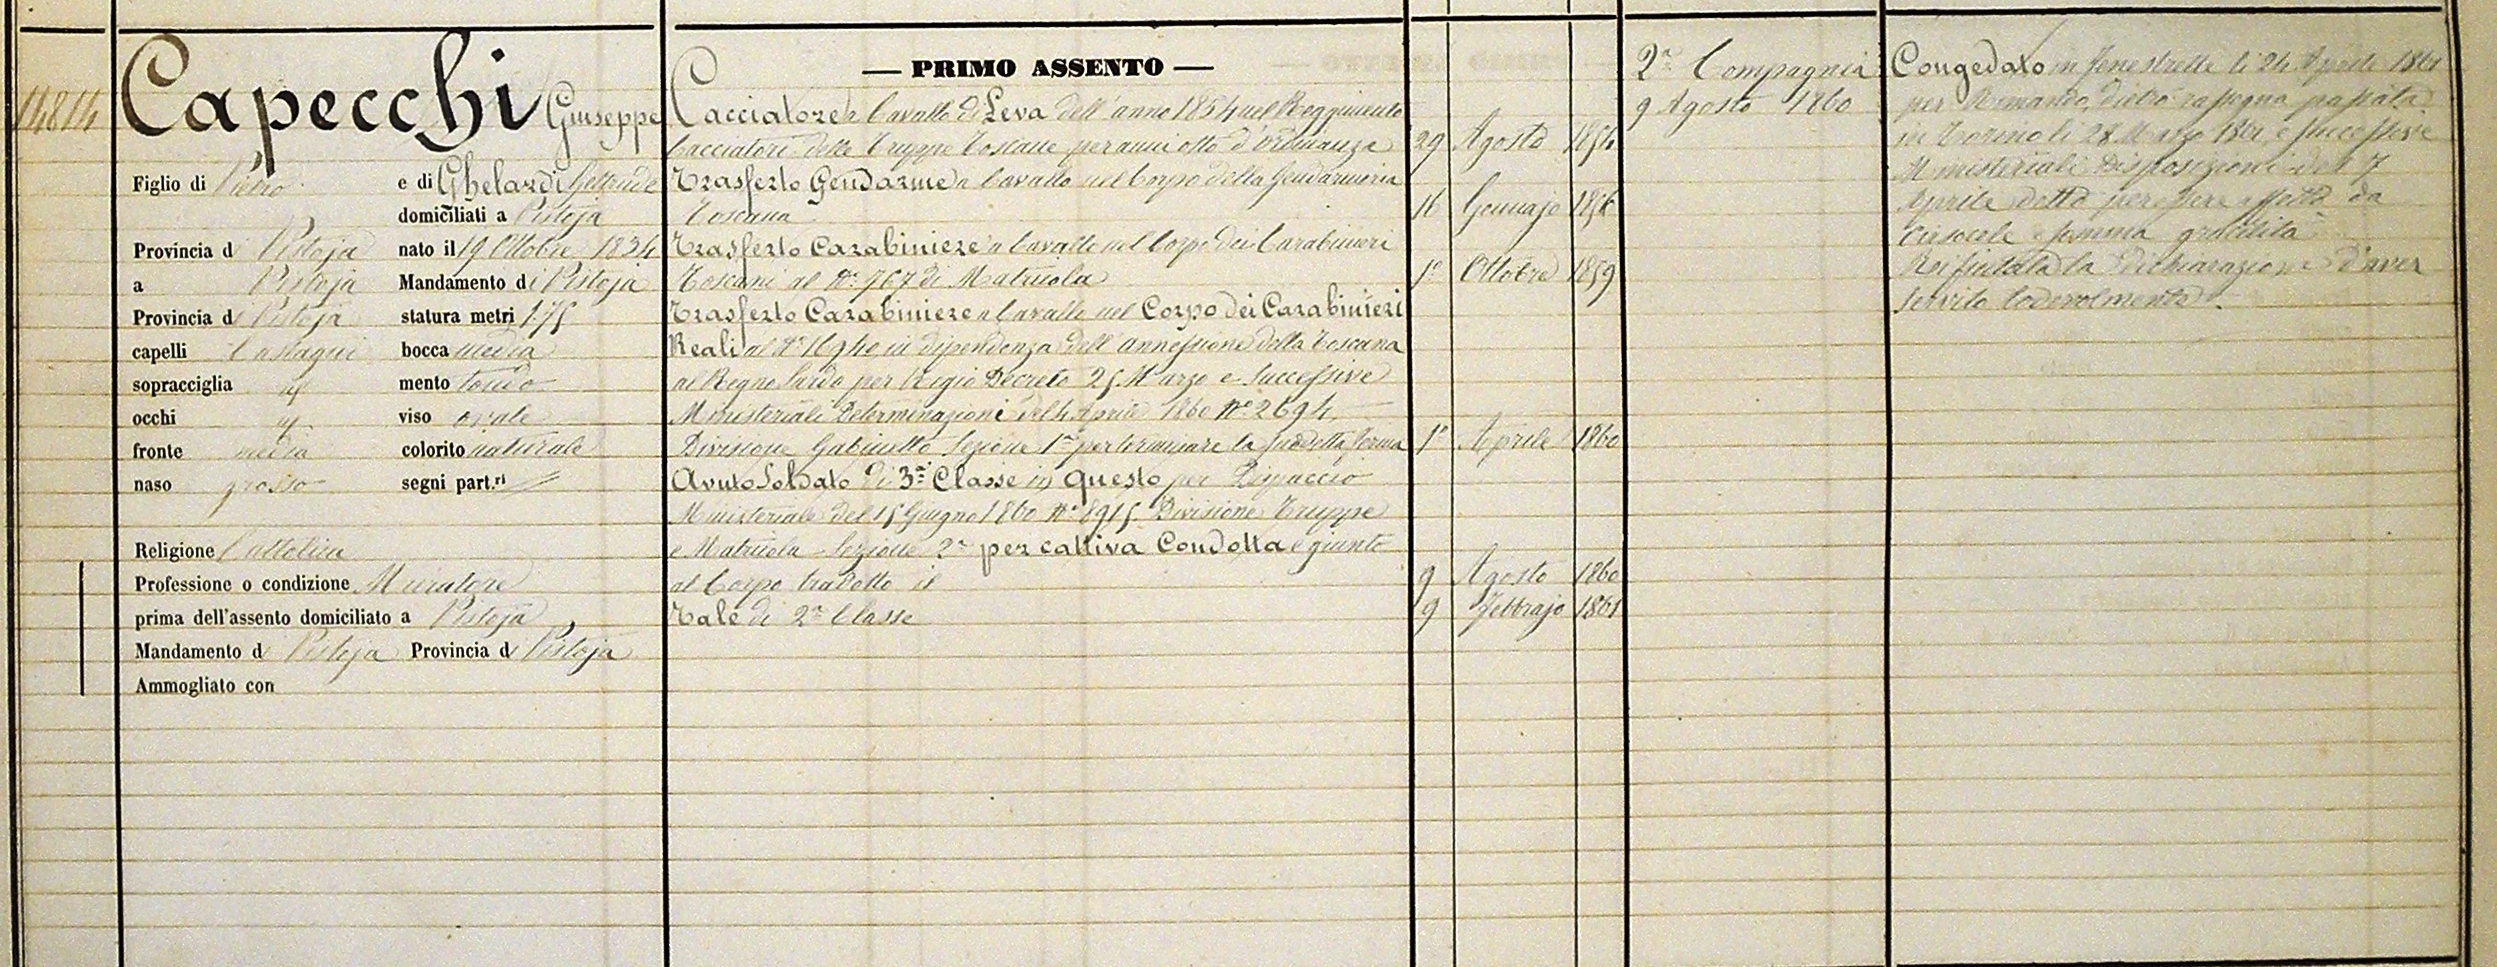 14814
Capecchi Giuseppe
Figlio di Pietro e di Ghelardi Geltrude
domiciliati a Pistoja
Provincia di Pistoja nato il 19 Ottobre 1834
a Pistoja Mandamento di Pistoja
Provincia di Pistoja statura metri 1.75
capelli Castagni bocca media
sopracciglia id mento tondo
occhi id viso ovale
fronte media colorito naturale
naso grosso segni part.ri //
Religione Cattolica
Professione o condizione Muratore
prima dell'assento domiciliato a Pistoja
Mandamento di Pistoja Provincia di Pistoja
Ammogliato con
— PRIMO ASSENTO —
Cacciatore a Cavallo di Leva dell'anno 1854 nel Reggimento
Cacciatori delle Truppe Toscane per anni otto d'ordinanza 29 Agosto 1854
Trasferto Gendarme a Cavallo nel Corpo della Gendarmeria
Toscana 16 Gennajo 1856
Trasferto Carabiniere a Cavallo nel Corpo dei Carabinieri
Toscani al N° 767 di Matricola 1° Ottobre 1859
Trasferto Carabiniere a Cavallo nel Corpo dei Carabinieri
Reali al N° 16940 in dipendenza dell'annessione della Toscana
al Regno Sardo per Regio Decreto 25 Marzo e successive
Ministeriali Determinazioni del 4 Aprile 1860 N° 2694
Divisione Gabinetto Sezione 1a per terminare la suddetta ferma 1° Aprile 1860
Avuto Soldato di 3a Classe in questo per Dispaccio
Ministeriale del 15 Giugno 1860 N° 8915 Divisione Truppe
e Matricola Sezione 2a per cattiva Condotta e giunto
al Corpo tradotto il 9 Agosto 1860
Tale di 2a Classe 9 Febbrajo 1861
2a Compagnia
9 Agosto 1860
Congedato in Fenestrelle li 24 Aprile 1861
per Rimando, dietro rassegna passata
in Torino li 28 Marzo 1861 e successive
Ministeriali Disposizioni del 7
Aprile detto per essere affetto da
Cirsocele e somma gracilità
Rifiutata la dichiarazione d'aver
servito lodevolmente.